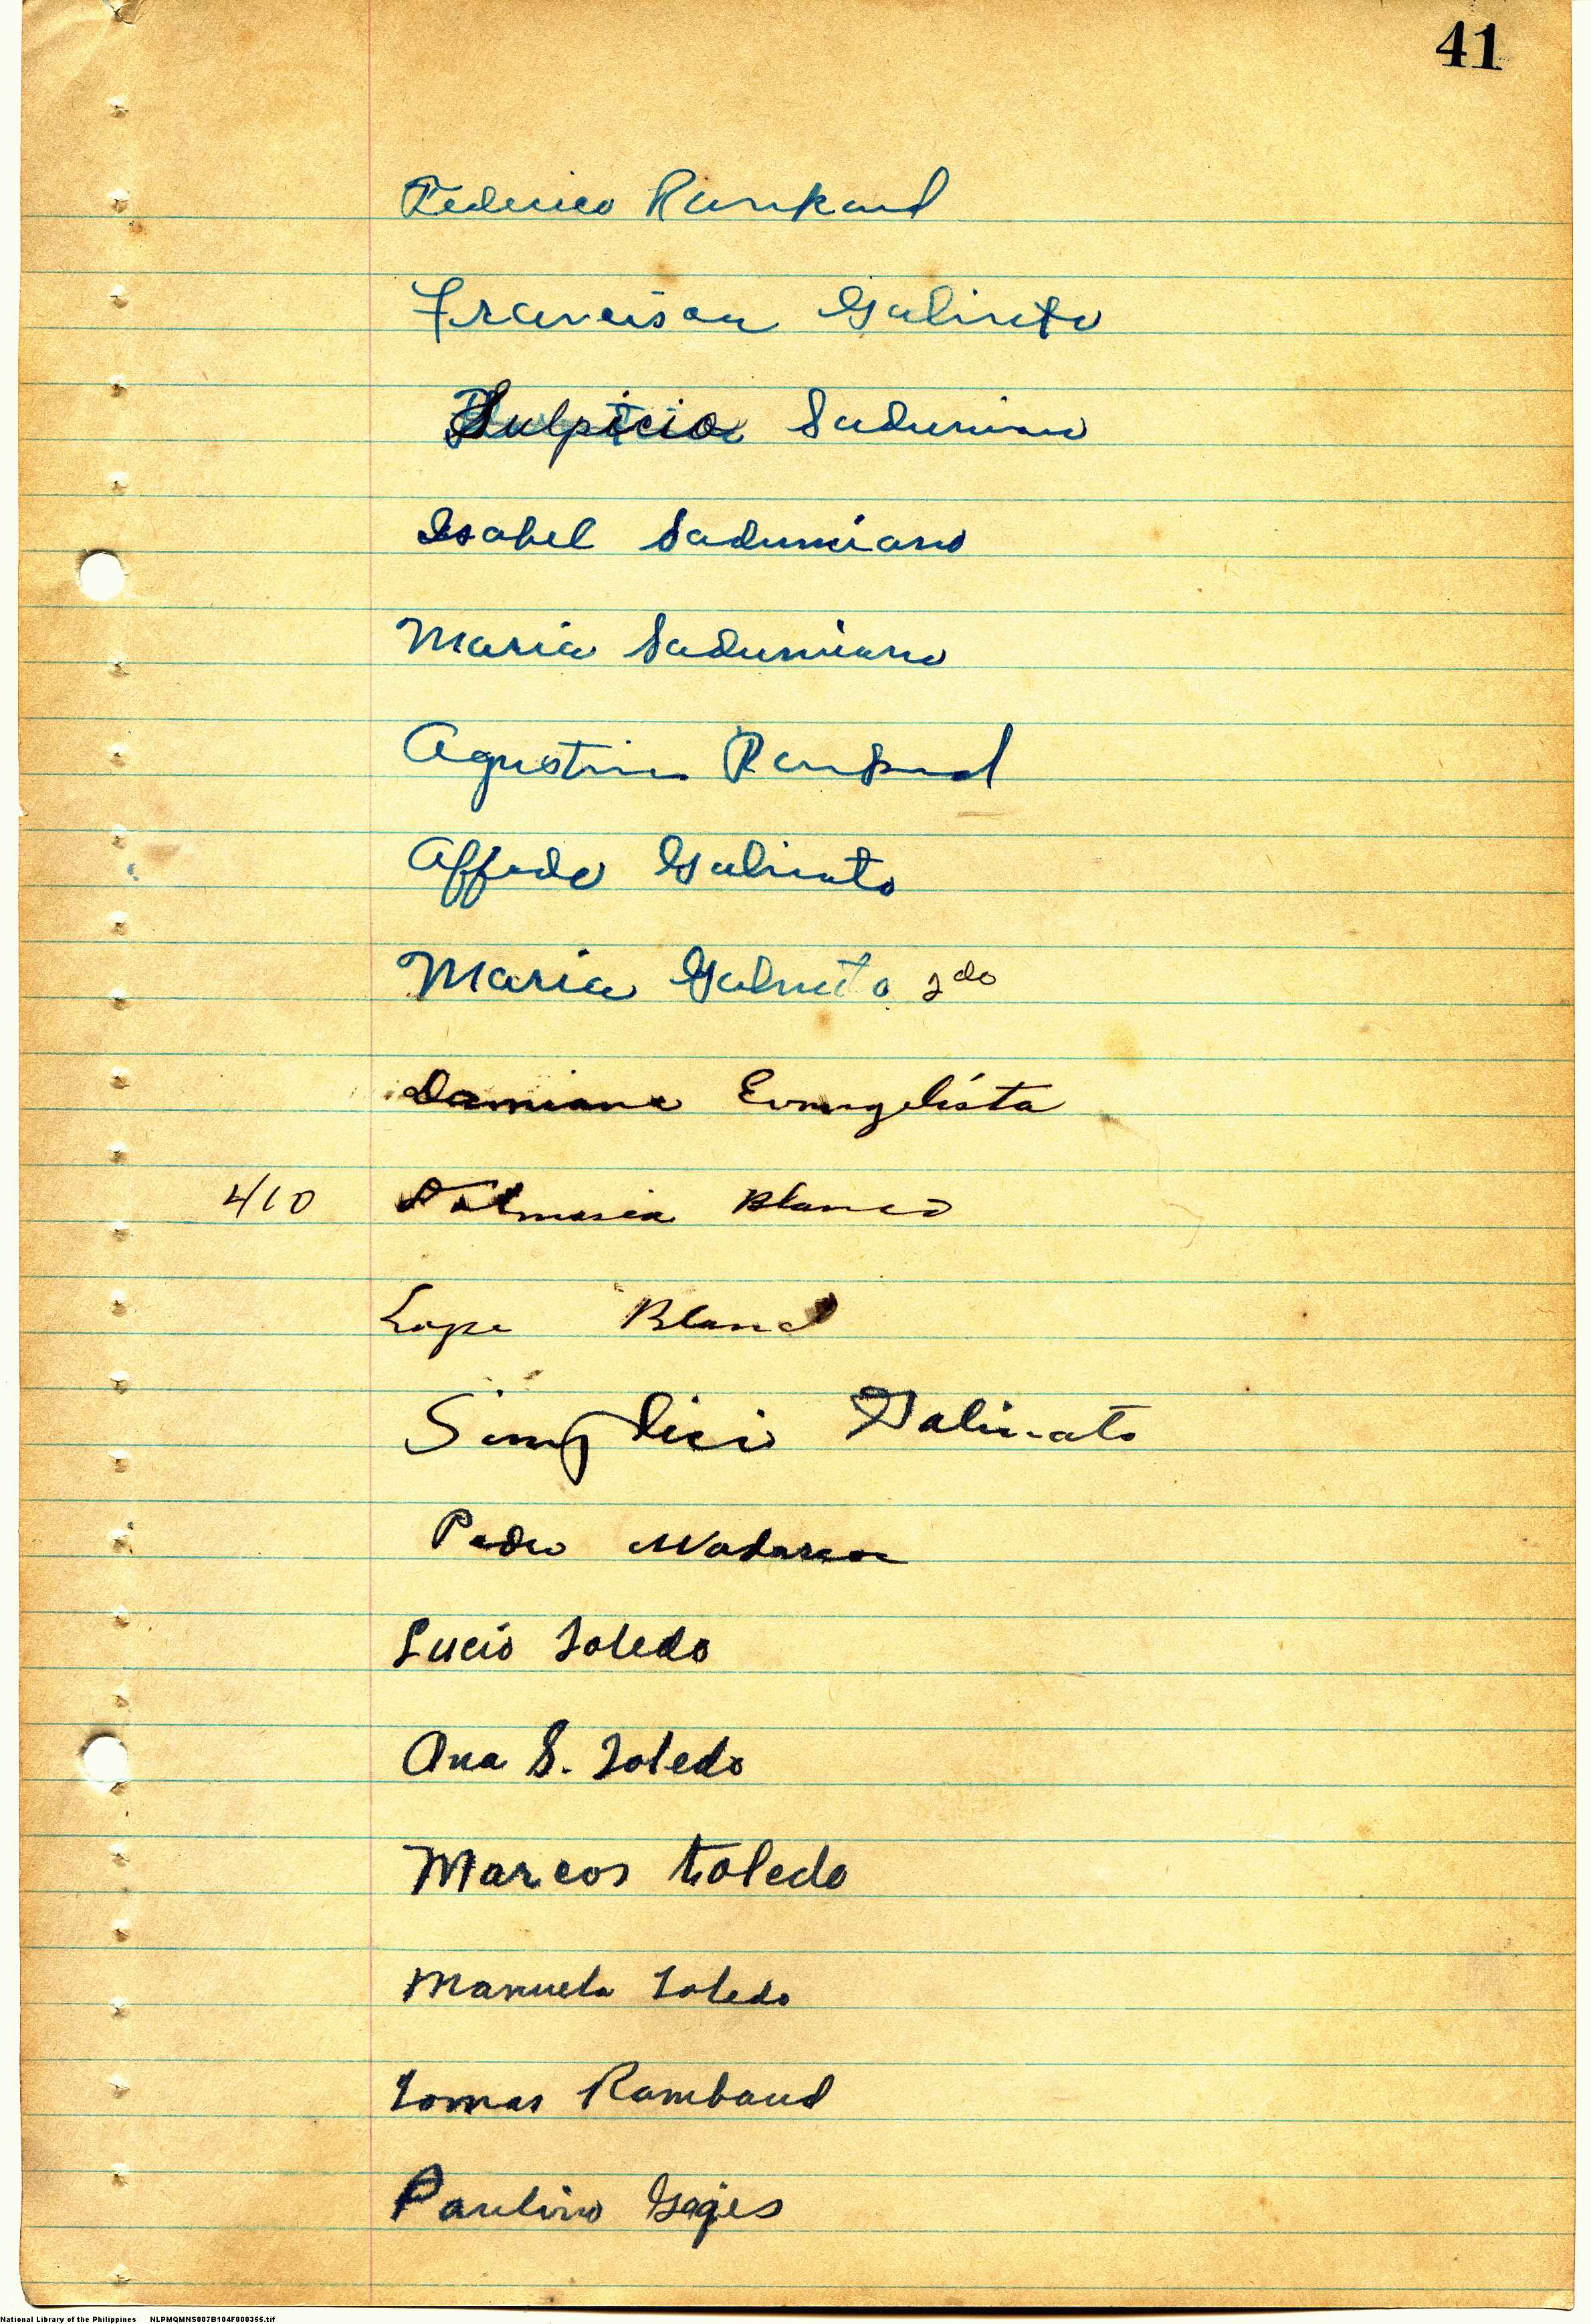 41
Federico Rambaud
Francisca Galinato
Sulpicio Sadumiano
Isabel Sadumiano
Maria Sadumiano
Agustin Rambaud
Alfredo Galinato
Maria Galinato 2do
Damiana Evangelista
410 Dalmasia Blanco
Lope Blanco
Simplicio Galinato
Pedro
Lucio Toledo
Ana S. Toledo
Marcos Toledo
Manuela Toledo
Tomas Rambaud
Paulino Gajes
National Library of the Philippines NLPMQMNS007B104F000355.tif